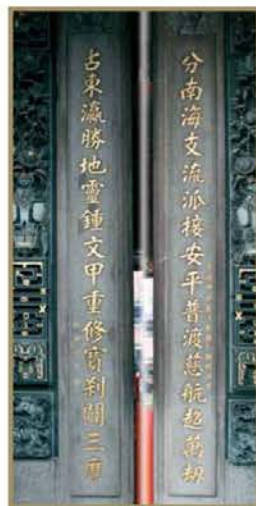 分南海支流派接安平普渡慈航超萬劫
占東瀛勝地靈鍾文甲重修寶剎闢三摩